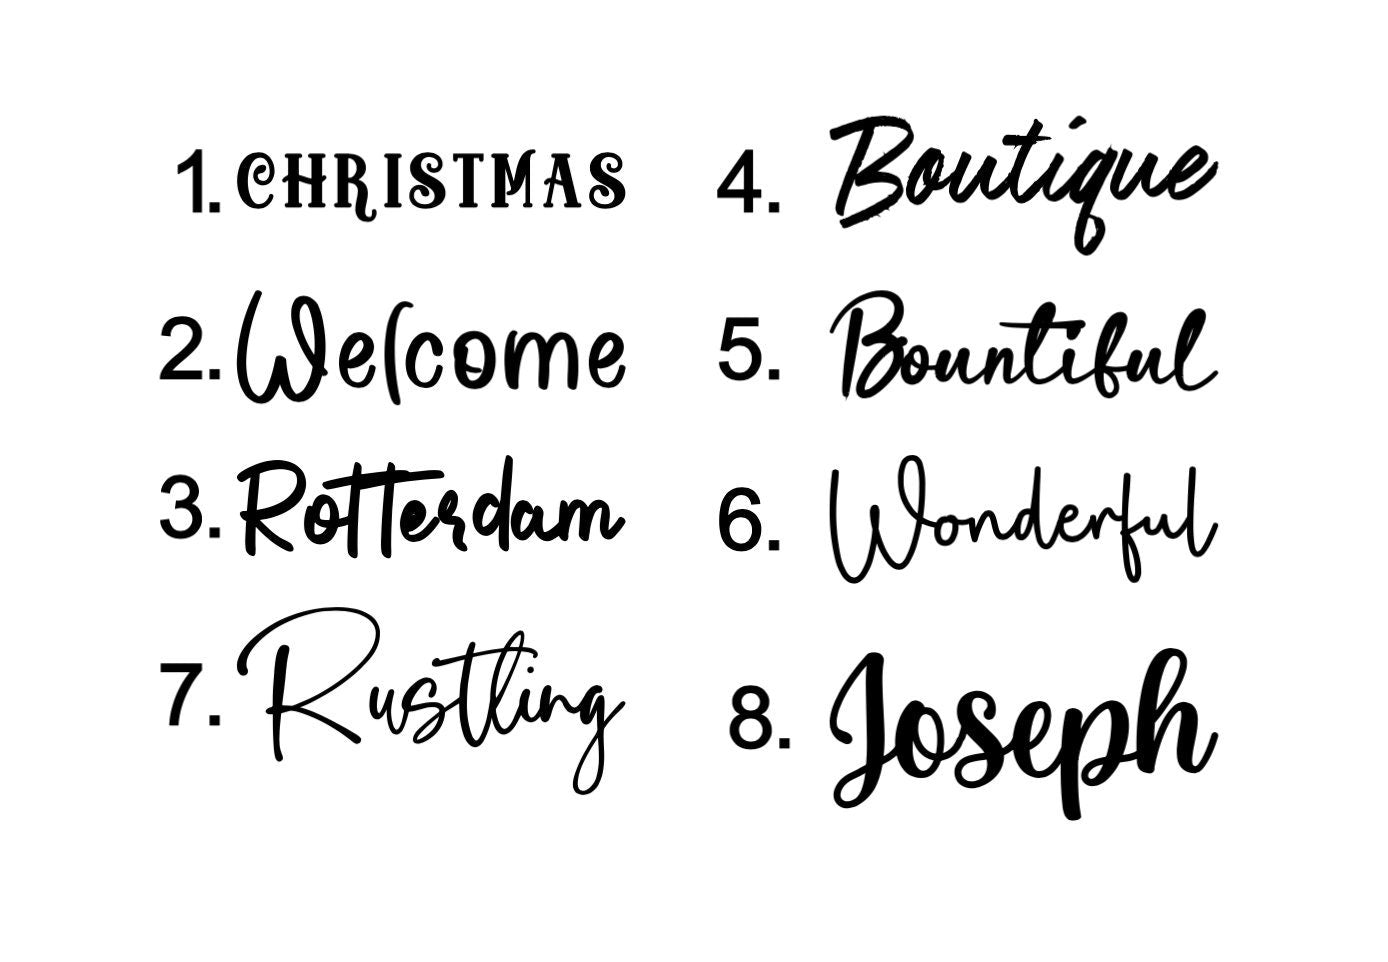 1. CHRISTMAS
2. Welcome
3. Rotterdam
7. Rustling
4. Boutique
5. Bountiful
6. Wonderful
8. Joseph